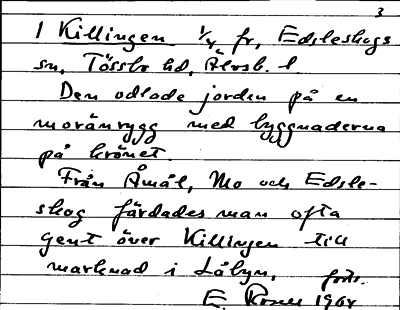 3
1 Killingen 1/4 fr, Edsleskogs
sn, Tössbo hd, Älvsb. l
Den odlade jorden på en
moränrygg med byggnaderna
på krönet.
Från Åmål, Mo och Edsle-
skog färdades man ofta
gent över Killingen till
marknad i Låbyn, forts.
E. Rosell 1964